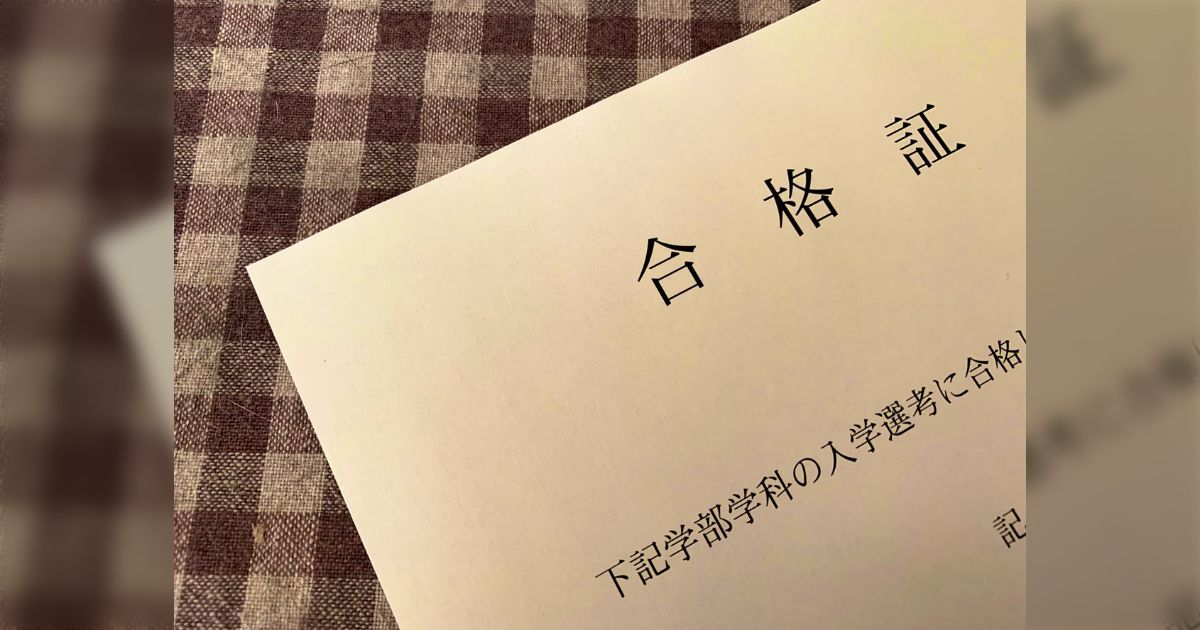 合格証
下記学部学科の入学選考に合格し
記